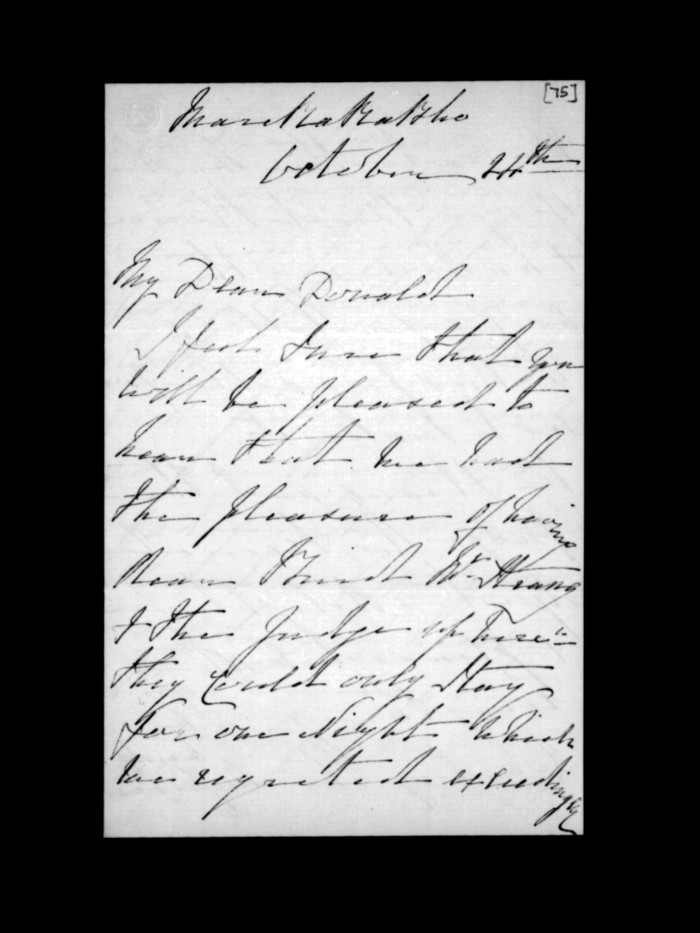 [75]
Maraekakaho
October 24th
My Dear Donald
I feel sure that you
will be pleased to
hear that we had
the pleasure of having
dear Mr Strang
& the Judge up here
they could only stay
for one Night which
we regreted exceedingly